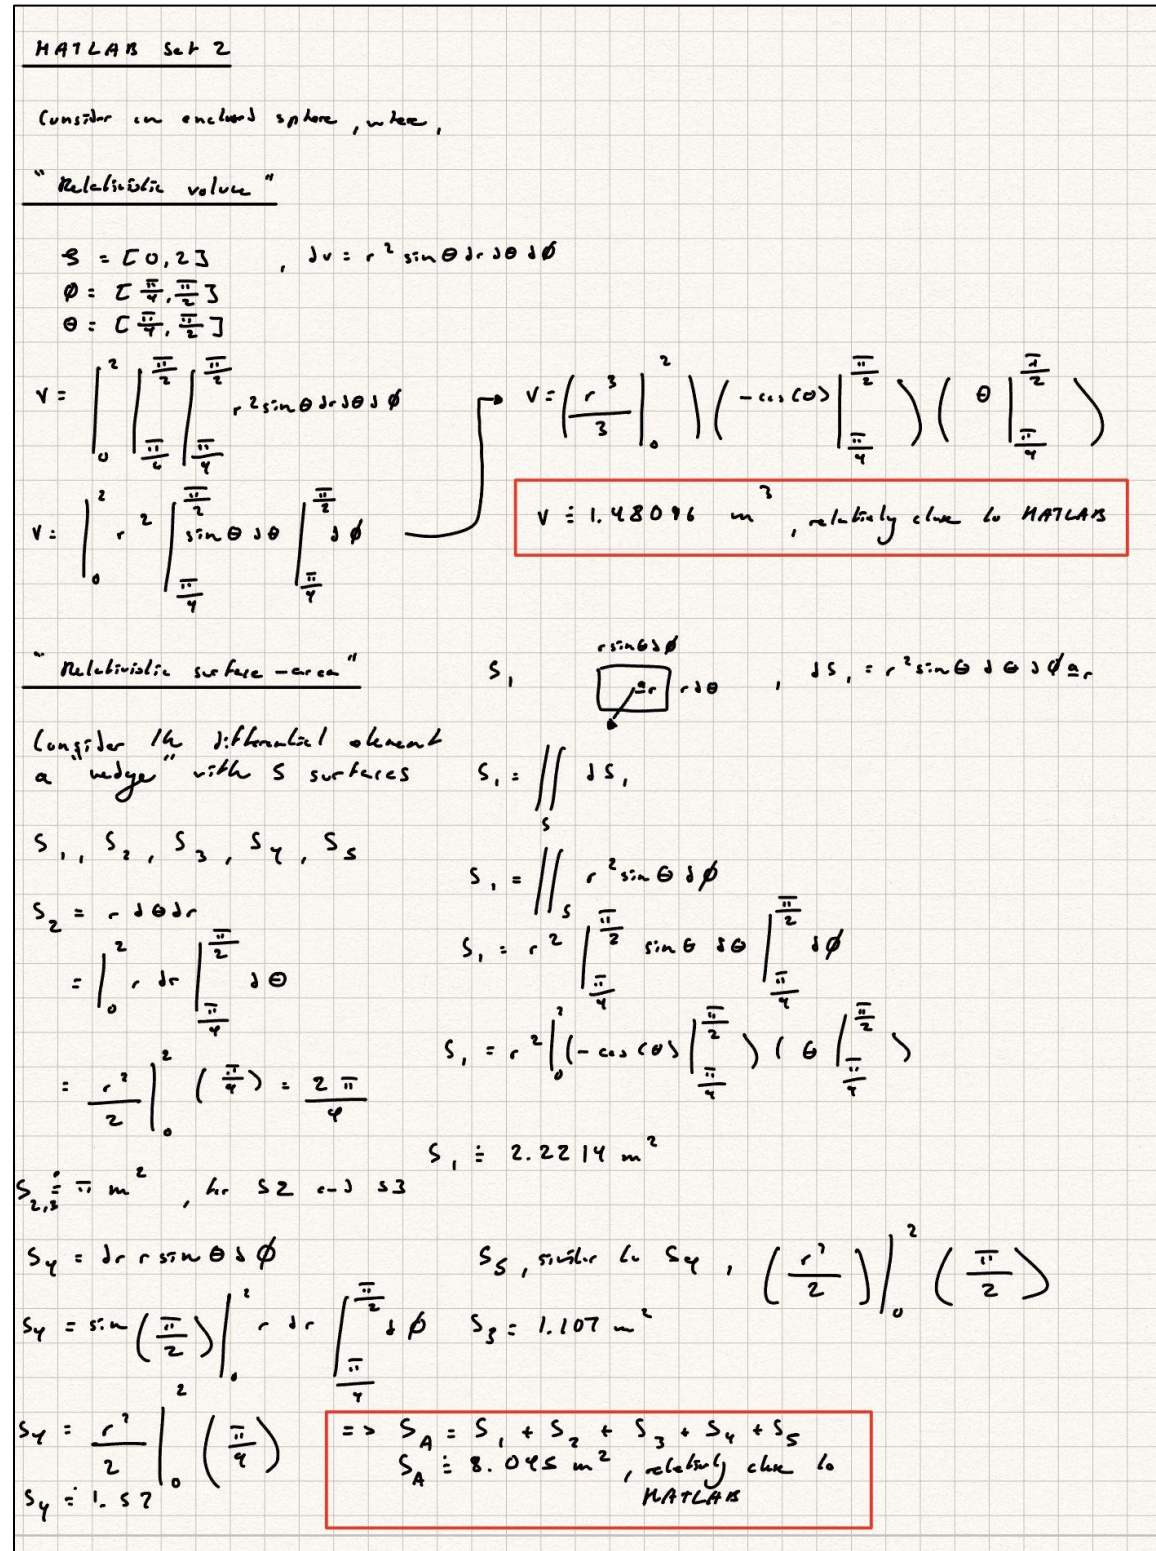 MATLAB Set 2
Consider an enclosed sphere, where,
"Relativistic volume"
S = [0,2] , dv = r² sin θ dr dθ dφ
φ = [π/4, π/2]
θ = [π/4, π/2]
V = ∫₀² ∫_{π/4}^{π/2} ∫_{π/4}^{π/2} r² sin θ dr dθ dφ
V = ∫₀² r² ∫_{π/4}^{π/2} sin θ dθ ∫_{π/4}^{π/2} dφ
V = (r³/3 |₀²) (-cos(θ) |_{π/4}^{π/2}) (θ |_{π/4}^{π/2})
V ≐ 1.48096 m³, relatively close to MATLAB
"Relativistic surface-area"
Consider the differential element
a "wedge" with 5 surfaces
S₁, S₂, S₃, S₄, S₅
S₂ = r dθ dr
= ∫₀² r dr ∫_{π/4}^{π/2} dθ
= r²/2 |₀² (π/4) = 2π/4
S₂,₃ ≐ π m² , for S2 and S3
S₄ = dr r sin θ dφ
S₄ = sin(π/2) ∫₀² r dr ∫_{π/4}^{π/2} dφ
S₄ = r²/2 |₀² (π/4)
S₄ ≐ 1.57
S₁
r sin θ dφ
a_r r dθ , dS₁ = r² sin θ dθ dφ a_r
S₁ = ∬_S dS₁
S₁ = ∬_S r² sin θ dφ
S₁ = r² ∫_{π/4}^{π/2} sin θ dθ ∫_{π/4}^{π/2} dφ
S₁ = r² |₀² (-cos(θ) |_{π/4}^{π/2}) (θ |_{π/4}^{π/2})
S₁ ≐ 2.2214 m²
S₅, similar to S₄, (r²/2) |₀² (π/2)
S₅ = 1.107 m²
=> S_A = S₁ + S₂ + S₃ + S₄ + S₅
S_A ≐ 8.045 m², relatively close to
MATLAB